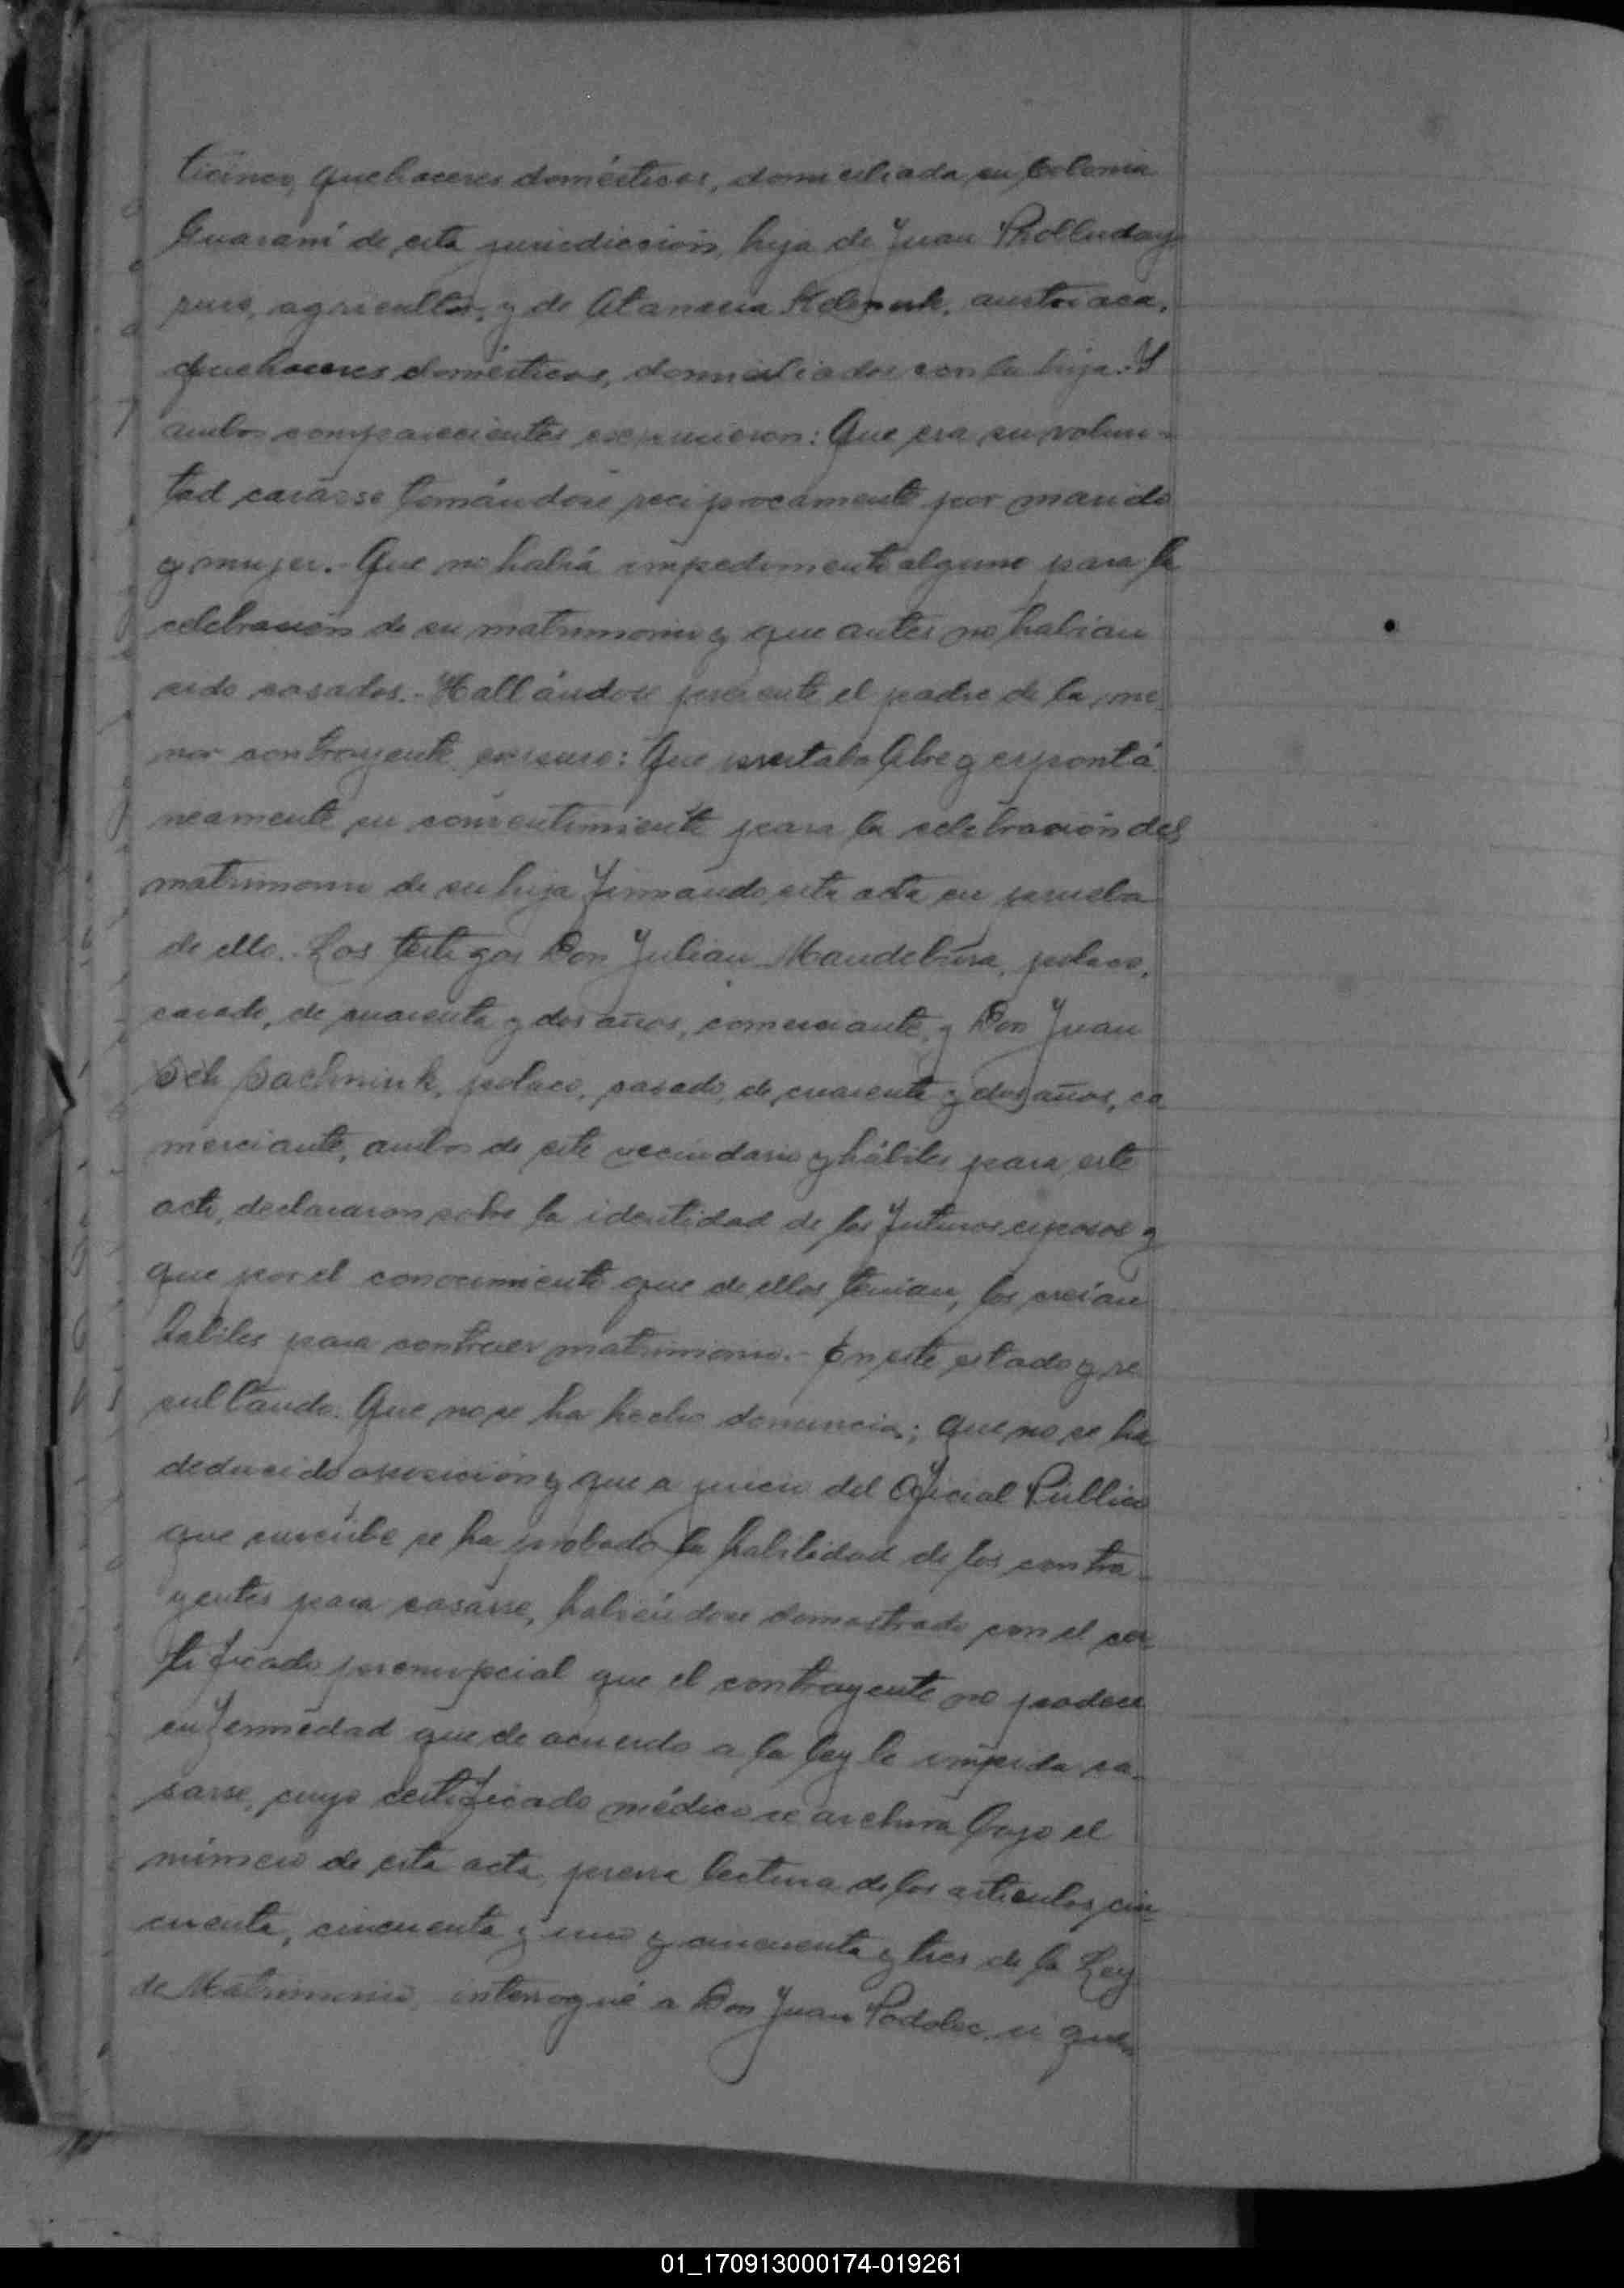 ticinco, quehaceres domésticos, domiciliada en Colonia
Guaraní de esta jurisdicción, hija de Juan
ruso, agricultor, y de Atanasia austriaca,
quehaceres domésticos, domiciliados con la hija.- Y
ambos comparecientes expusieron: Que era su volun-
tad casarse tomándose reciprocamente por marido
y mujer.- Que no había impedimento alguno para la
celebración de su matrimonio y que antes no habían
sido casados.- Hallándose presente el padre de la me-
nor contrayente, expuso: Que prestaba libre y espontá-
neamente su consentimiento para la celebración del
matrimonio de su hija firmando esta acta en prueba
de ello.- Los testigos Don Julian polaco,
casado, de cuarenta y dos años, comerciante, y Don Juan
polaco, casado, de cuarenta y dos años, co
merciante, ambos de este vecindario y hábiles para este
acto, declararon sobre la identidad de los futuros esposos y
que por el conocimiento que de ellos tenían, los creían
habiles para contraer matrimonio.- En este estado y re
sultando: Que no se ha hecho denuncia; que no se ha
deducido oposición y que a juicio del Oficial Público
que suscribe se ha probado la habilidad de los contra-
yentes para casarse, habiéndose demostrado con el cer-
tificado prenupcial que el contrayente no padece
enfermedad que de acuerdo a la ley le impida ca-
sarse, cuyo certificado médico se archiva bajo el
número de esta acta, previa lectura de los artículos cin-
cuenta, cincuenta y uno y cincuenta y tres de la Ley
de Matrimonio, interrogué a Don Juan Podolec, si que-
01_170913000174-019261